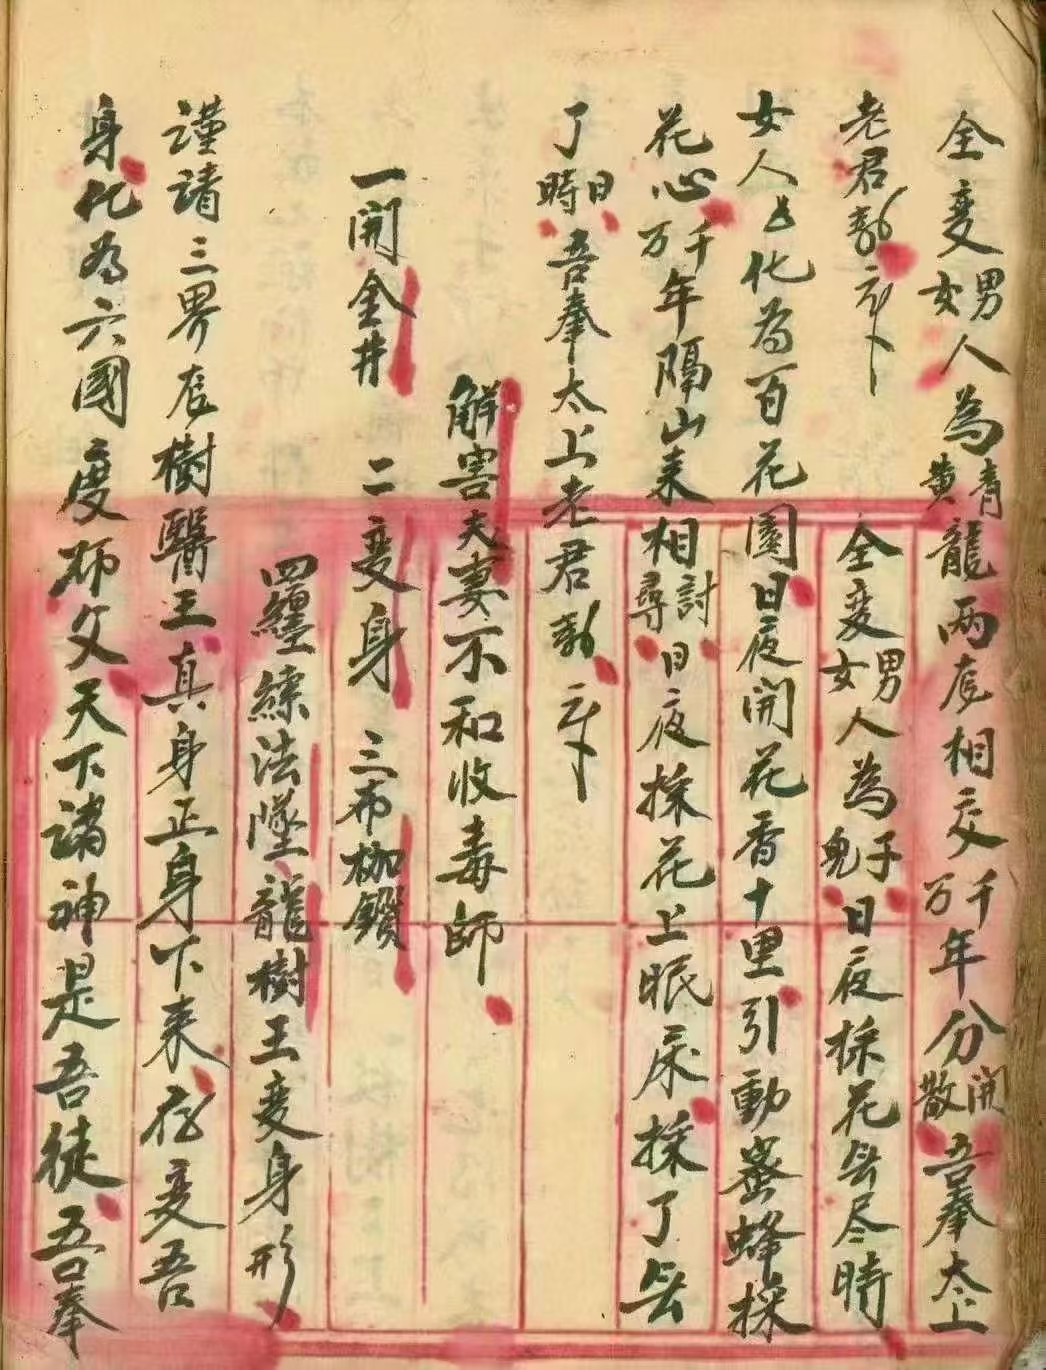 全变男女人為青黄龍两度相交千万年分開散吾奉太上
老君勅
全变男女人為子兒日夜採花无尽時
女人占化為百花園日夜開花香十里引動蜜蜂採
花心千万年隔山来相討尋日夜採花上眠床採了无
了日時吾奉太上老君勅
解害夫妻不和收毒師
一開金井 二变身 三布枷鎖
四纏縤法墜龍樹王变身形
謹請三界 樹醫王真身正身下来 变吾
身化為六國度师父天下諸神是吾徒吾奉